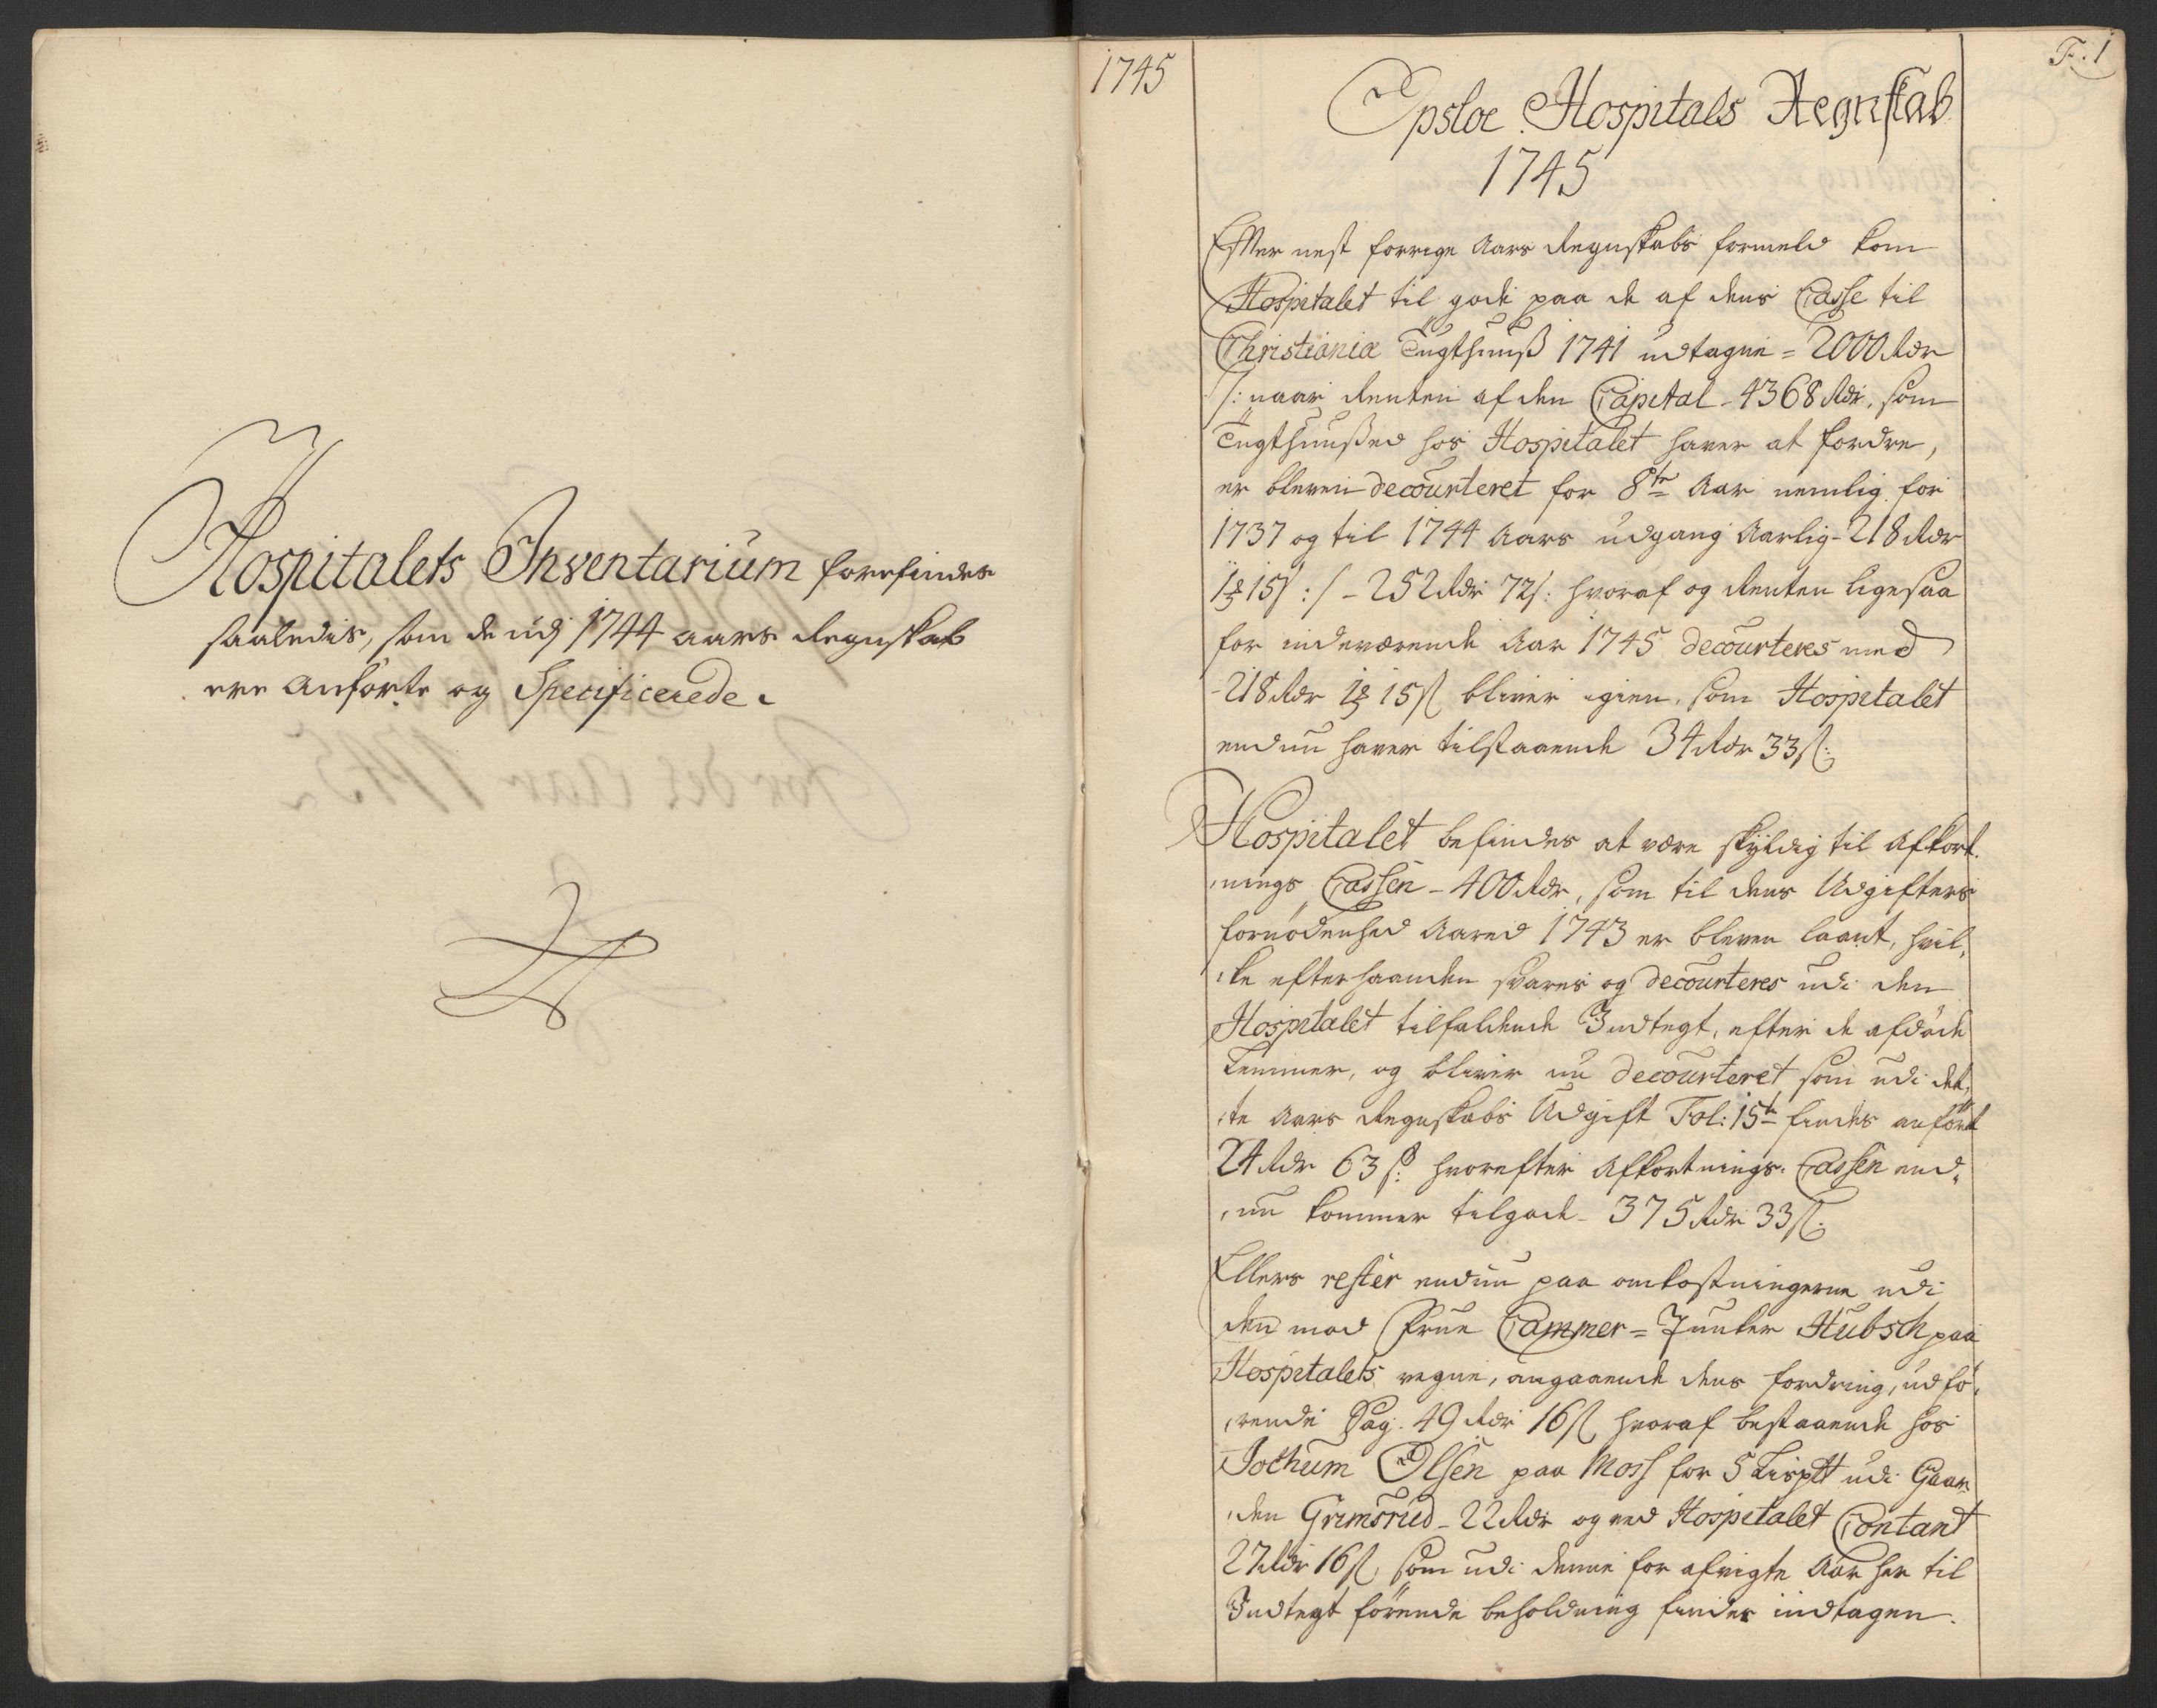 Hospitalets Inventarium forefindes
saaledis, som de udj 1744 aars Regnskab
ere Anførte og Specificerede.
1745
F: 1
Opsloe Hospitals Regnskab
1745
Efter nest forrige Aars Regnskabs formeld kom
Hospitalet til gode paa de af dens Casse til
Christianiæ Tugthuuß 1741 udtagne = 2000 Rdr
/: naar Renten af den Capital - 4368 Rdr, som
Tugthuußed hos Hospitalet haver at fordre,
er bleven decourteret for 8te Aar nemlig for
1737 og til 1744 Aars udgang Aarlig - 218 Rdr
1 15 s :/ - 252 Rdr 72 s: hvoraf og Renten ligesaa
for indeværende Aar 1745 decourteres med
- 218 Rdr 1 15 s bliver igien, som Hospitalet
endnu haver tilstaaende 34 Rdr 33 s:
Hospitalet befindes at være skyldig til Afkort-
nings Cassen - 400 Rdr, som til dens Udgifters
fornødenhed Aared 1743 er bleven laant, hvil-
ke efterhaanden svares og decourteres udi den
Hospitalet tilfaldende Indtegt, efter de afdøde
Lemmer, og bliver nu decourteret som udi det-
te Aars Regnskabs Udgift Fol: 15de findes anført
24 Rdr 63 s: hvorefter Afkortnings Cassen end-
nu kommer tilgode - 375 Rdr 33 s:
Ellers rester endnu paa omkostningerne udi
den mod Frue Cammer = Junker Hübsch paa
Hospitalets vegne, angaaende dens fordring, udfø-
rende Sag. 49 Rdr 16 s hvoraf bestaaende hos
Jochum Olsen paa Moss for 5 Lispd udi Gaar-
den Grimsrud - 22 Rdr og ved Hospitalet Contant
27 Rdr 16 s, som udi denne for afvigte Aar her til
Indtegt førende beholdning findes indtagen.